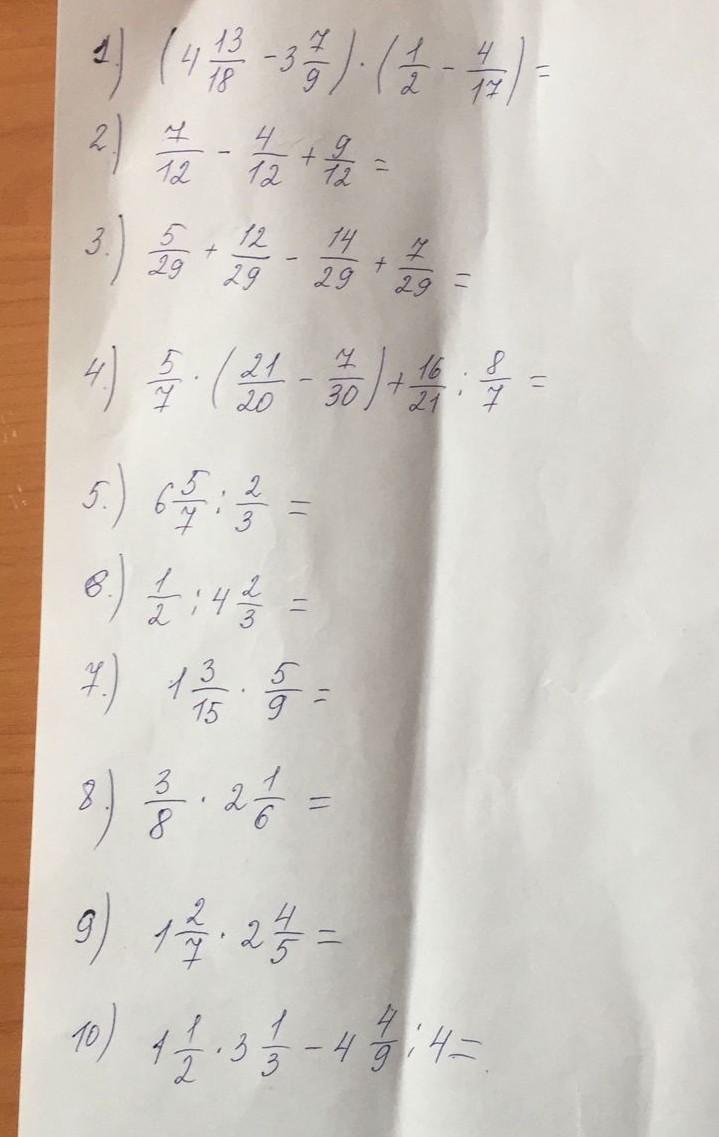 1.) (4 13/18 - 3 7/9) · (1/2 - 4/17) =
2.) 7/12 - 4/12 + 9/12 =
3.) 5/29 + 12/29 - 14/29 + 7/29 =
4.) 5/7 · (21/20 - 7/30) + 16/21 : 8/7 =
5.) 6 5/7 : 2/3 =
6.) 1/2 : 4 2/3 =
7.) 1 3/15 · 5/9 =
8.) 3/8 · 2 1/6 =
9) 1 2/7 · 2 4/5 =
10) 1 1/2 · 3 1/3 - 4 4/9 : 4 =